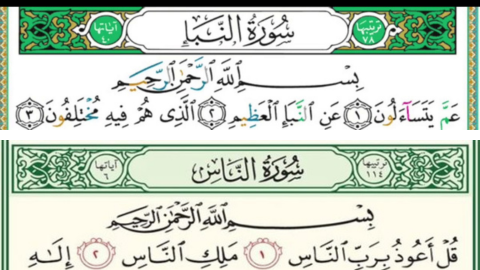 ترتيبها ٧٨ سُورَةُ النَّبَإِ آياتها ٤٠
بِسْمِ اللَّهِ الرَّحْمَٰنِ الرَّحِيمِ
عَمَّ يَتَسَآءَلُونَ ١ عَنِ النَّبَإِ الْعَظِيمِ ٢ الَّذِى هُمْ فِيهِ مُخْتَلِفُونَ ٣
ترتيبها ١١٤ سُورَةُ النَّاسِ آياتها ٦
بِسْمِ اللَّهِ الرَّحْمَٰنِ الرَّحِيمِ
قُلْ أَعُوذُ بِرَبِّ النَّاسِ ١ مَلِكِ النَّاسِ ٢ إِلَٰهِ